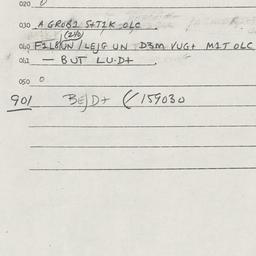 020 0
030 A GROB1 S+T1K OLC
(2/6)
040 F1L8/UN / LEJG UN D3M VUG+ M1T OLC
041 — BUT LU.D+
050 0
901 BEJD+ (/159030